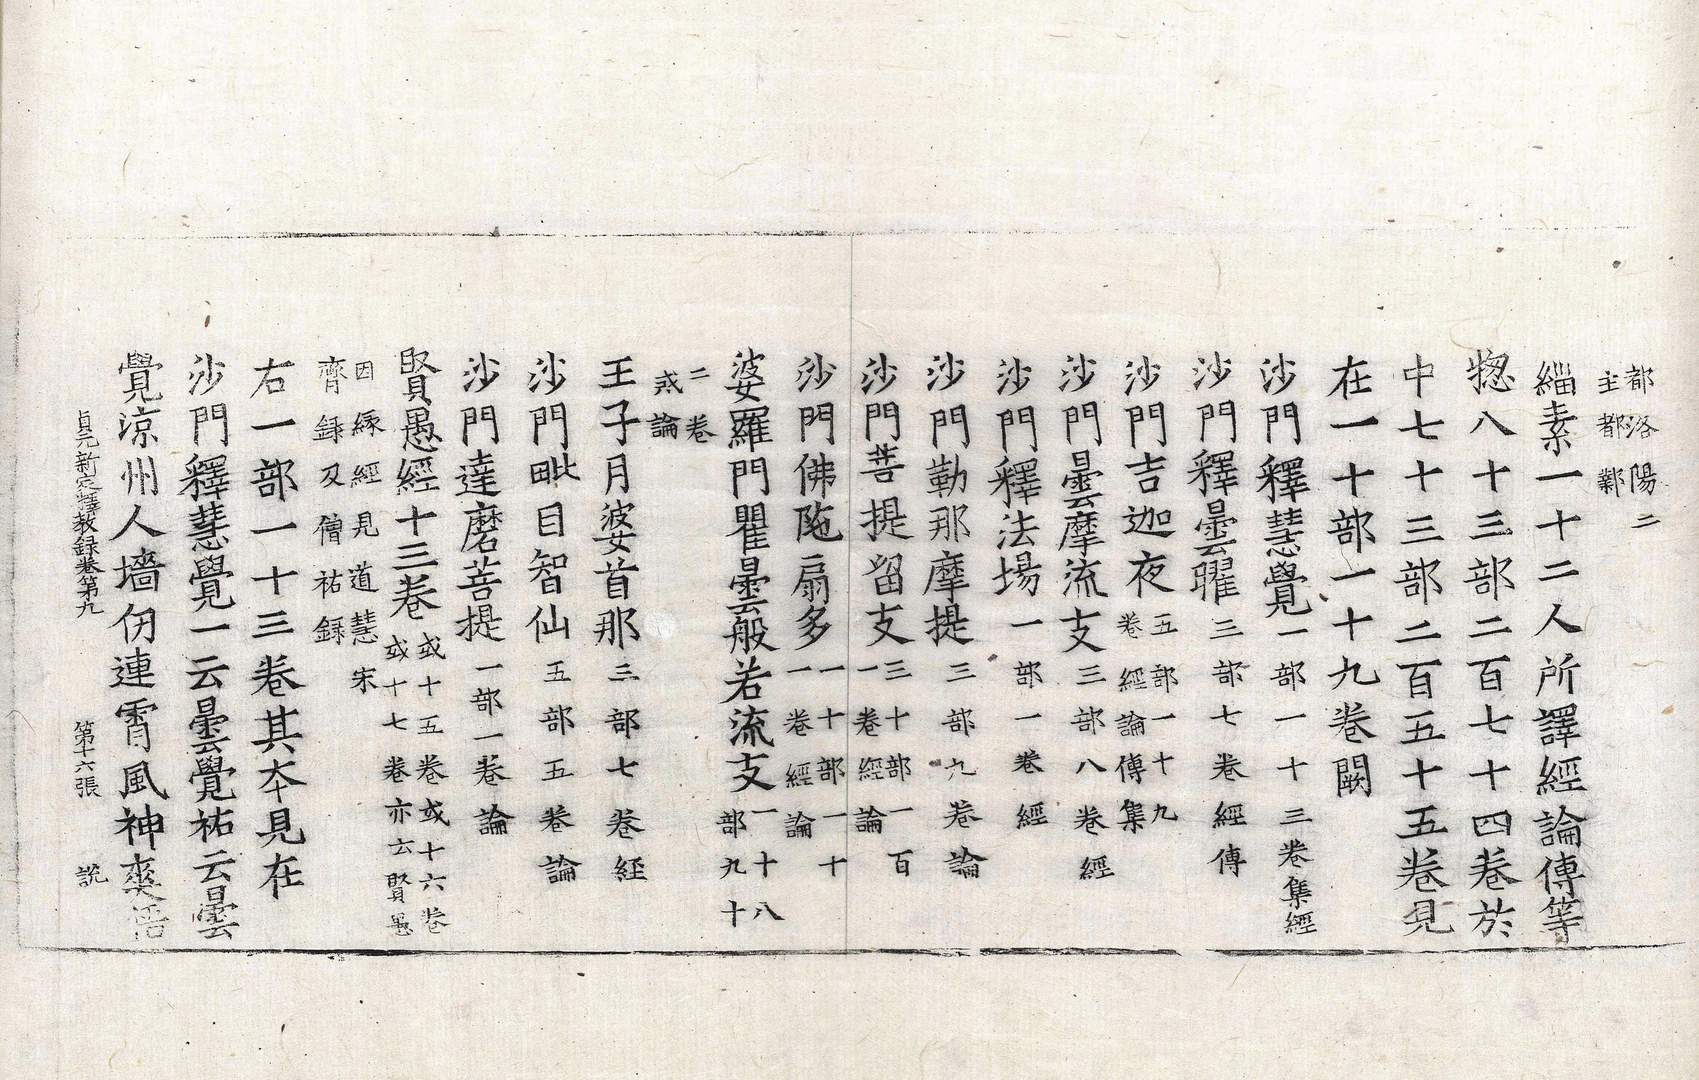 都洛陽二
主都鄴
緇素一十二人所譯經論傳等
惣八十三部二百七十四卷於
中七十三部二百五十五卷見
在一十部一十九卷闕
沙門釋慧覺一部一十三卷集經
沙門釋曇曜三部七卷經傳
沙門吉迦夜五部一十九
卷經論傳集
沙門曇摩流支三部八卷經
沙門釋法場一部一卷經
沙門勒那摩提三部九卷論
沙門菩提留支三十部一百
一卷經論
沙門佛陁扇多一十部一十
一卷經論
婆羅門瞿曇般若流支一十八
部九十
二卷
惑論
王子月婆首那三部七卷経
沙門毗目智仙五部五卷論
沙門達磨菩提一部一卷論
賢愚經十三卷或十五卷或十六卷
或十七卷亦云賢愚
因縁經見道慧宋
齊録及僧祐録
右一部一十三卷其夲見在
沙門釋慧覺一云曇覺祐云曇
覺凉州人墻仞連霄風神爽悟
貞元新定釋教録卷第九 第十六張 説